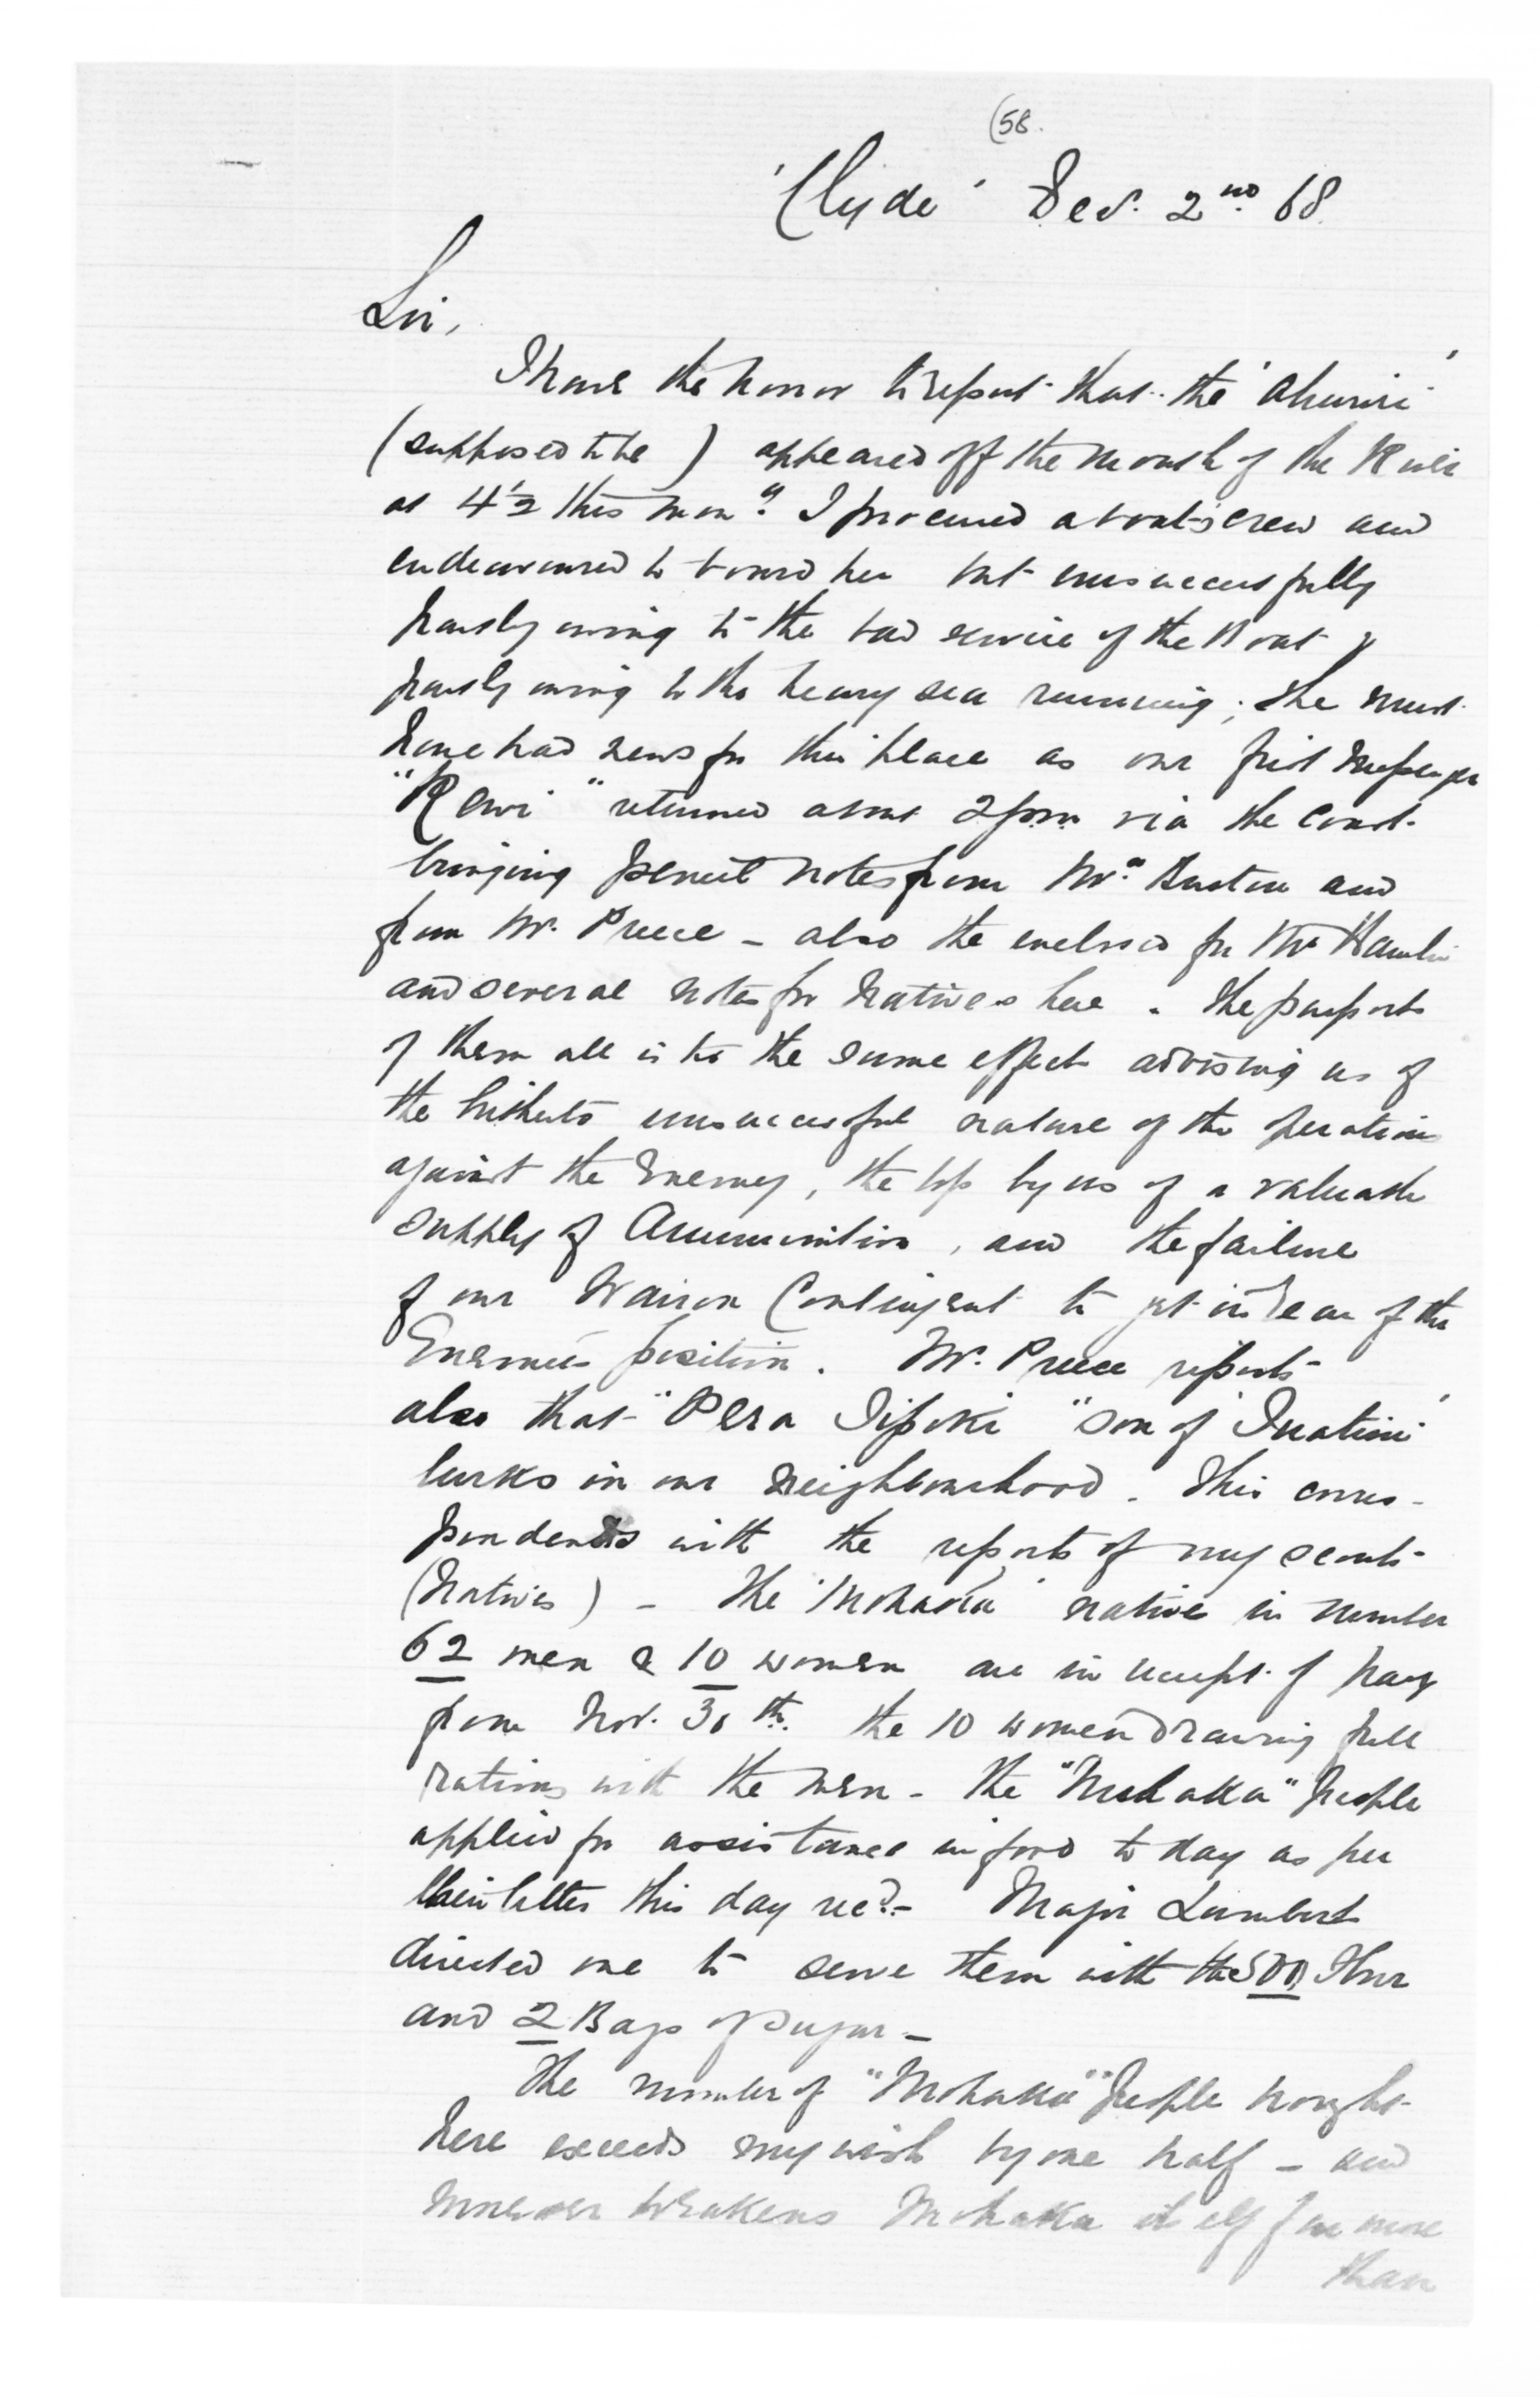 (58.
'Clyde' Decr. 2nd 68.
Sir,
I have the honor to report that the 'Ahuriri'
(supposed to be) appeared off the mouth of the River
at 4½ this morng. I procured a boat's crew and
endeavoured to board her but unsuccessfully
partly owing to the bad service of the Boat &
partly owing to the heavy sea running; she must
have had news for this place as our first messenger
"Rewi" returned about 2 p.m. via the coast
bringing pencil notes from Mr. Burton and
from Mr. Preece – also the enclosed for Mr Hamlin
and several notes for Natives here. The purport
of them all is to the same effect advising us of
the hitherto unsuccessful nature of the operations
against the Enemy, the loss by us of a valuable
supply of Ammunition, and the failure
of our Wairoa Contingent to get in rear of the
Enemies position. Mr. Preece reports
also that "Pera Tipoki" son of 'Ihatini'
lurks in our neighbourhood. This corres-
pondents with the reports of my scouts
(Natives) – The 'Mohaka' native in number
62 men & 10 women are in receipt of pay
from Nov. 30th. the 10 women drawing full
rations with the men – The "Mohaka" people
applied for assistance in food to day as per
their letter this day recd. – Major Lambert
directed me to serve them with the 500 flour
and 2 Bags of Sugar –
The number of "Mohaka" people brought
here exceeds my wish by one half – and
moreover weakens Mohaka itself far more
than